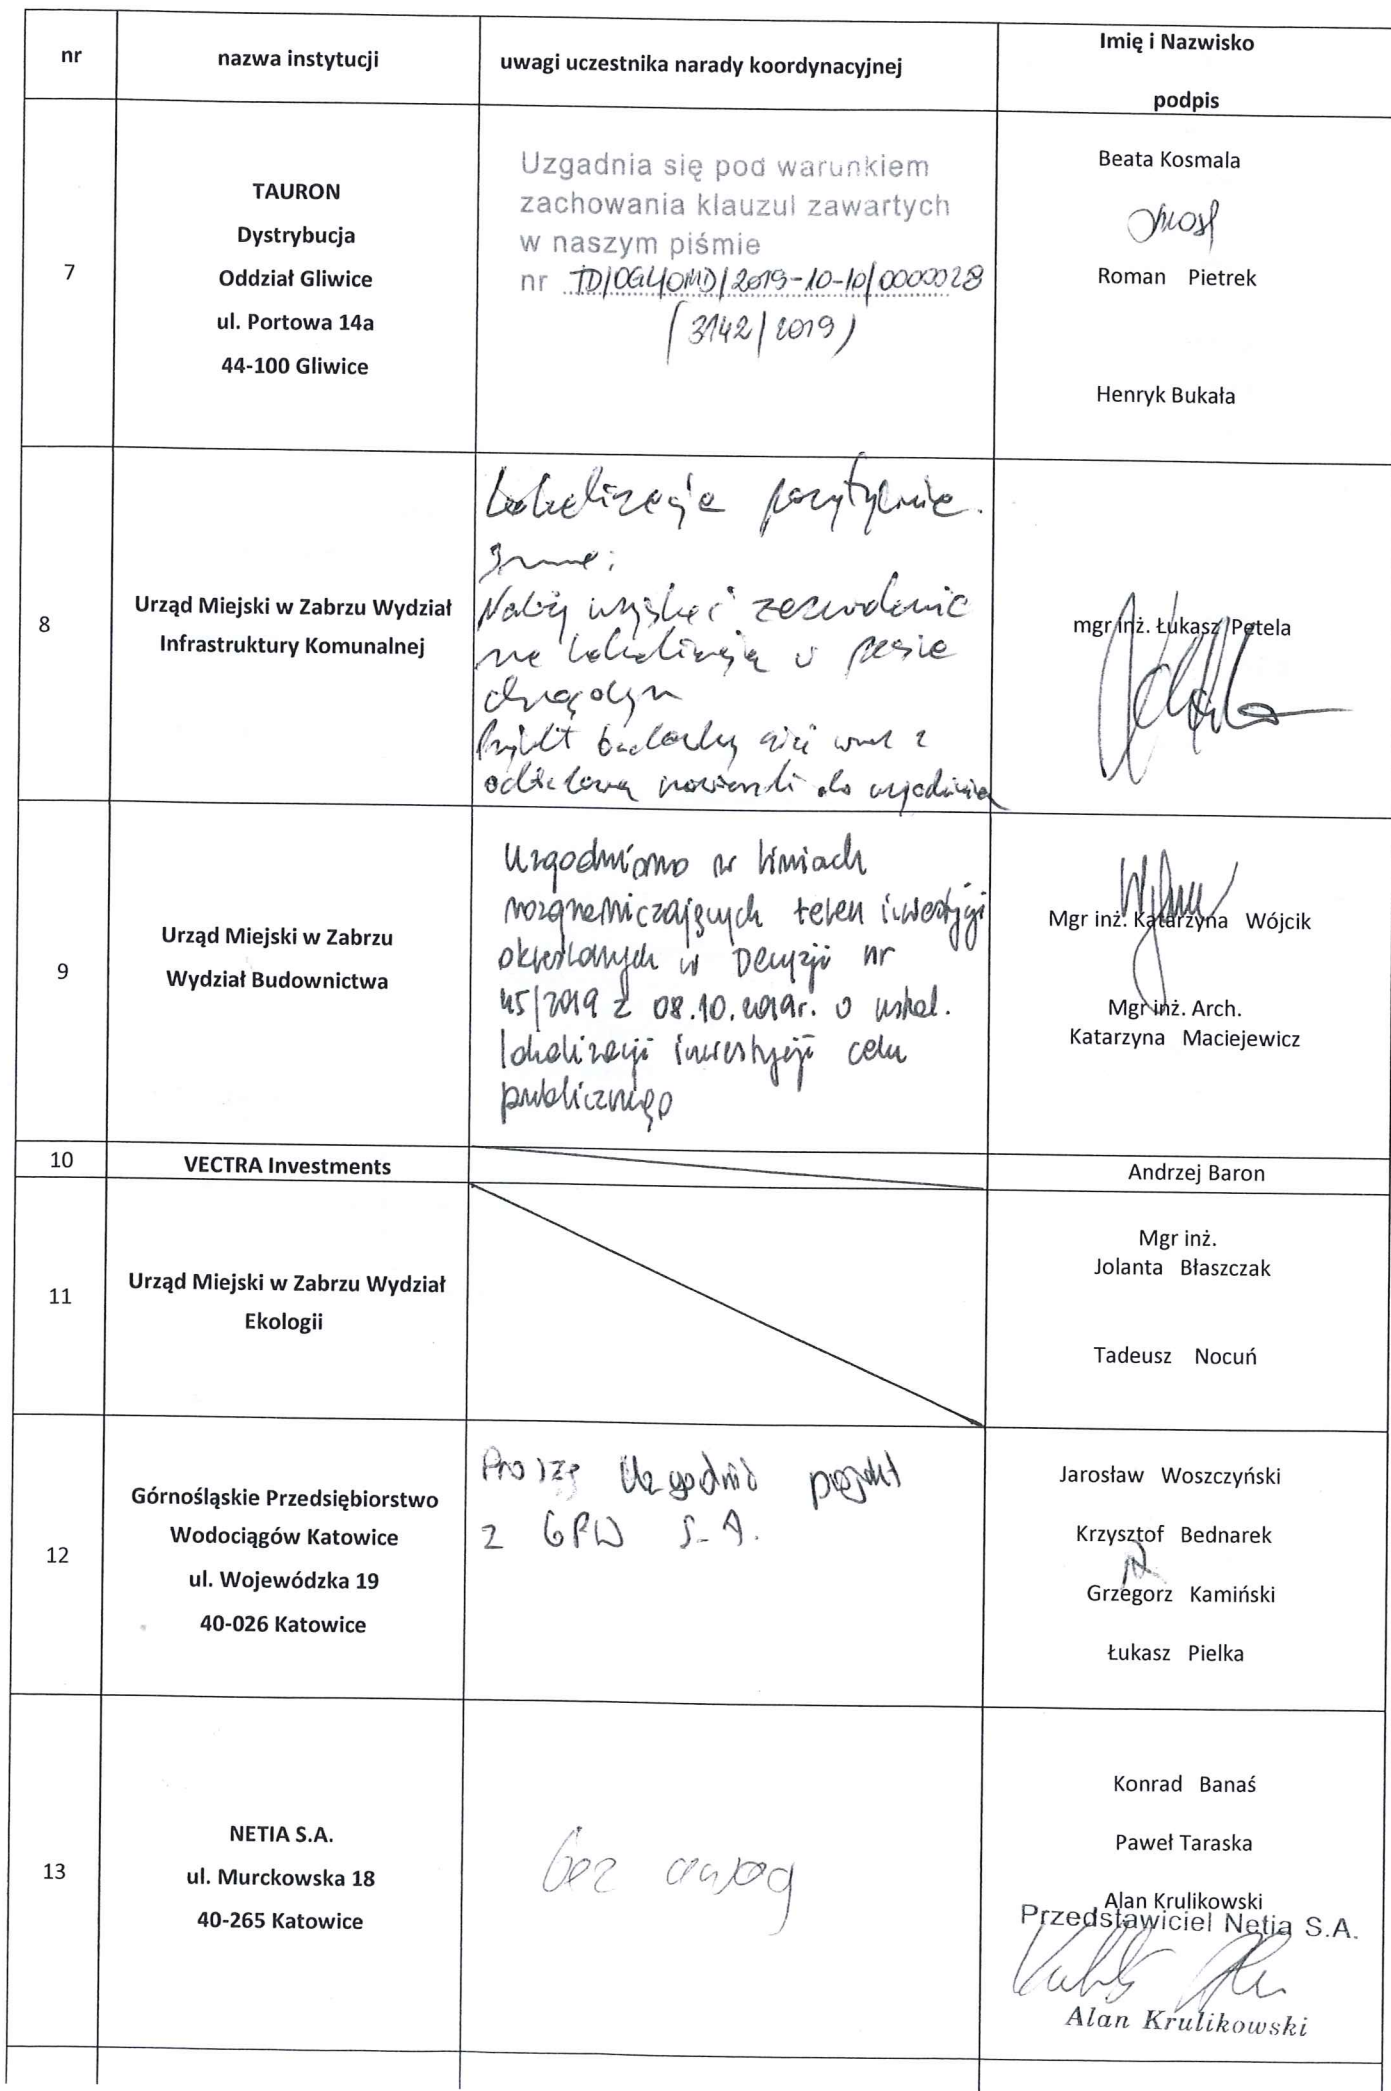 nr
nazwa instytucji
uwagi uczestnika narady koordynacyjnej
Imię i Nazwisko
podpis
7
TAURON
Dystrybucja
Oddział Gliwice
ul. Portowa 14a
44-100 Gliwice
Uzgadnia się pod warunkiem
zachowania klauzul zawartych
w naszym piśmie
nr TD/OGL/OMD/2019-10-10/0000028
(3142/2019)
Beata Kosmala
Roman Pietrek
Henryk Bukała
8
Urząd Miejski w Zabrzu Wydział
Infrastruktury Komunalnej
Lokalizacja pozytywnie.
Inne:
Należy uzyskać zezwolenie
na lokalizację w pasie
drogowym
Projekt budowlany sieci wraz z
odtworzeniem nawierzchni do uzgodnienia
mgr inż. Łukasz Petela
9
Urząd Miejski w Zabrzu
Wydział Budownictwa
Uzgodniono w liniach
rozgraniczających teren inwestycji
określonych w Decyzji nr
45/2019 z 08.10.2019r. o ustal.
lokalizacji inwestycji celu
publicznego
Mgr inż. Katarzyna Wójcik
Mgr inż. Arch.
Katarzyna Maciejewicz
10
VECTRA Investments
Andrzej Baron
11
Urząd Miejski w Zabrzu Wydział
Ekologii
Mgr inż.
Jolanta Błaszczak
Tadeusz Nocuń
12
Górnośląskie Przedsiębiorstwo
Wodociągów Katowice
ul. Wojewódzka 19
40-026 Katowice
Proszę uzgodnić projekt
z GPW S.A.
Jarosław Woszczyński
Krzysztof Bednarek
Grzegorz Kamiński
Łukasz Pielka
13
NETIA S.A.
ul. Murckowska 18
40-265 Katowice
bez uwag
Konrad Banaś
Paweł Taraska
Alan Krulikowski
Przedstawiciel Netia S.A.
Alan Krulikowski